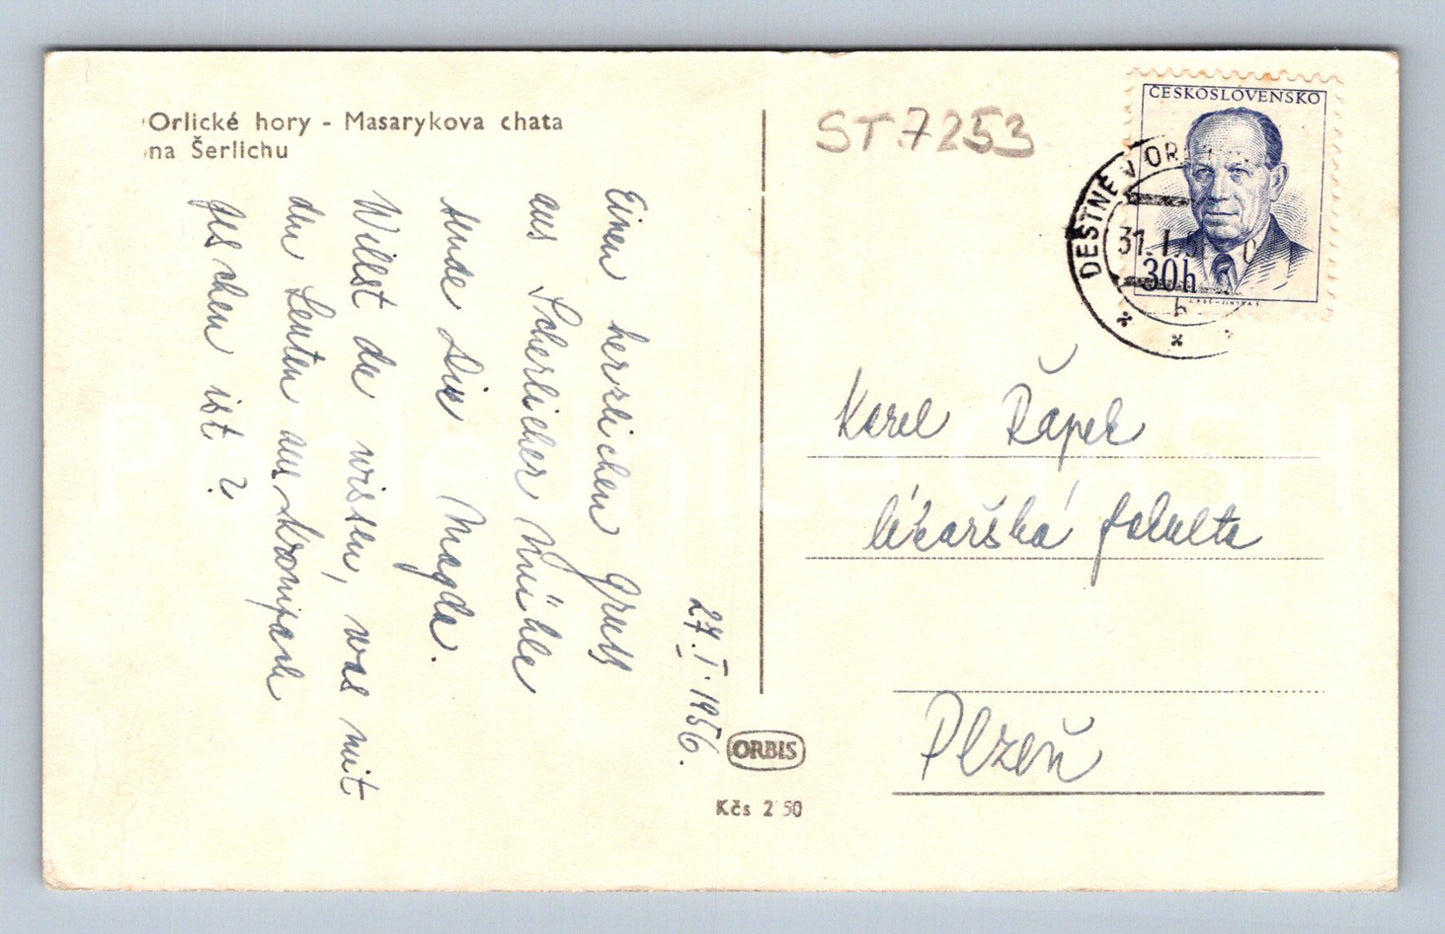 Orlické hory - Masarykova chata
na Šerlichu
ST7253
ČESKOSLOVENSKO
DEŠTNÉ V OR
31. I. 5
30h
b
27. I. 1956.
Einen herzlichen Gruss
aus Scherlicher Mühle
sende Dir Magda.
Willst du wissen, was mit
den Leuten aus
geschen ist?
Karel Řápek
lékařská fakulta
Plzeň
ORBIS
Kčs 2 50
Pohlednice GASH